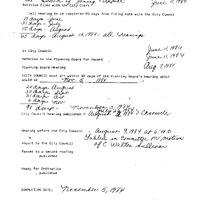 Petition filed with City Clerk
(All hearings to be completed 85 days from filing date with the City Council)
19 days - June
31 days - July
15 days - August
65 days - August 14, 1984 - all hearings
In City Council
June 11, 1984
Referred to the Planning Board for report
June 11, 1984
Planning Board Hearing
Aug 7, 1984
(CITY COUNCIL must act within 90 days of the Planning Board's hearing which would be Nov 5, 1984)
24 days - August
30 days - Sept
31 days - Oct
5 days - Nov
90 days - November 5, 1984
City Council hearing published August
Hearing before the City Council
August 9, 1984 at 5:00
Tabled in Committee on motion
Report to the City Council
of C. Walter Sullivan
Passed to a second reading
published
Ready for Ordination
published
COMPLETION DATE: November 5, 1984